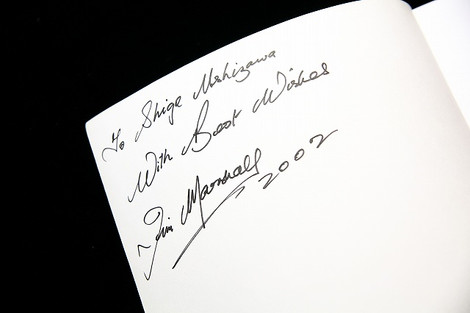 To Shige Mishizawa
With Best Wishes
Jim Marshall
2002